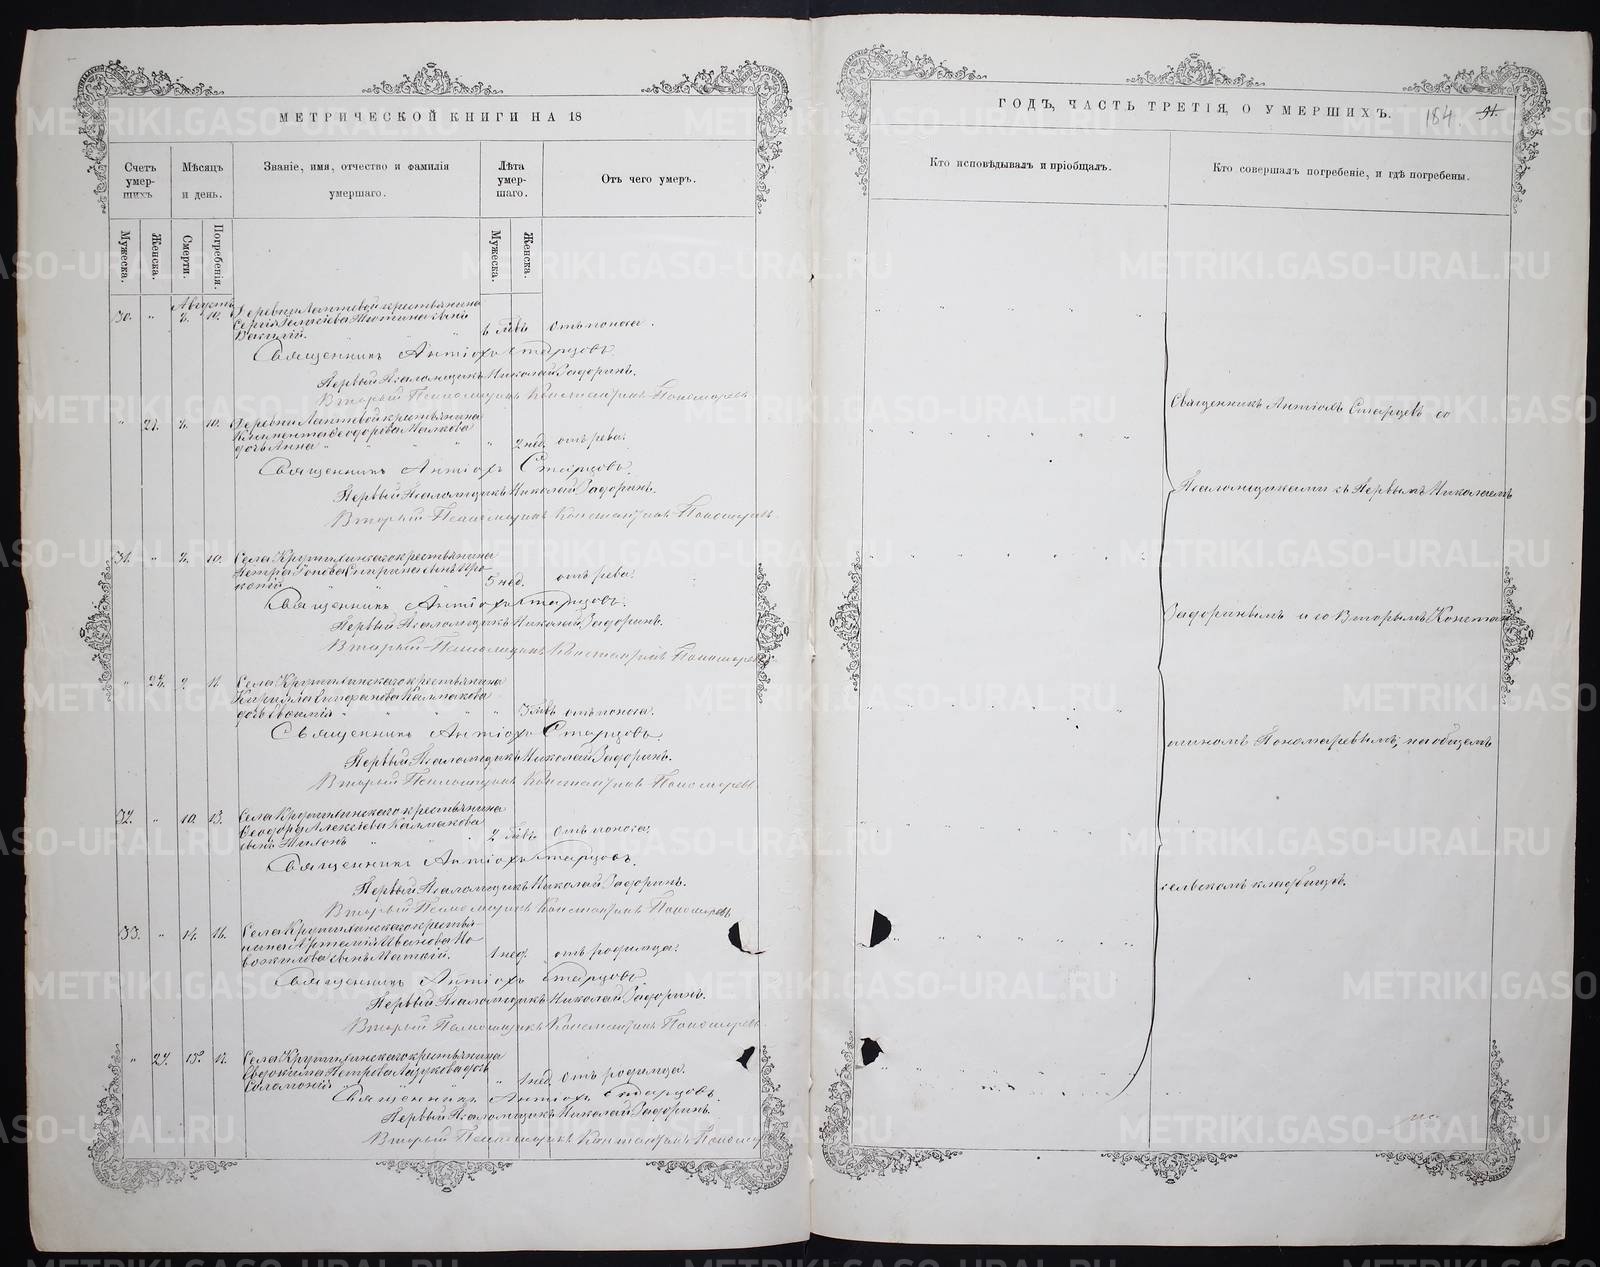 МЕТРИЧЕСКОЙ КНИГИ НА 18
Счетъ умер-шихъ
Мѣсяцъ и день.
Званіе, имя, отчество и фамилія умершаго.
Лѣта умер-шаго.
Отъ чего умеръ.
Мужеска.
Женска.
Смерти.
Погребенія.
Мужеска.
Женска.
Августъ
30. " 10. Деревни Лаптевой крестьянина
сынъ
Василій. отъ поноса.
Священникъ Антіохъ Старцовъ.
Первый Псаломщикъ Николай Задоринъ.
Второй Псаломщикъ Константинъ Пономаревъ
" 10. Деревни Лаптевой крестьянина
Климента Ѳеодорова
дочь Анна " 2 нед. отъ рева.
Священникъ Антіохъ Старцовъ.
Первый Псаломщикъ Николай Задоринъ.
Второй Псаломщикъ Константинъ Пономаревъ
31. " 10. Села Крутихинскаго крестьянина
Петра сынъ Про-
копій 5 нед. отъ рева.
Священникъ Антіохъ Старцовъ.
Первый Псаломщикъ Николай Задоринъ.
Второй Псаломщикъ Константинъ Пономаревъ
" Села Крутихинскаго крестьянина
Кирилла Калмакова
дочь " отъ поноса.
Священникъ Антіохъ Старцовъ.
Первый Псаломщикъ Николай Задоринъ.
Второй Псаломщикъ Константинъ Пономаревъ
32. " 10 13. Села Крутихинскаго крестьянина
Ѳеодора Алексіева Калмакова
сынъ отъ поноса.
Священникъ Антіохъ Старцовъ.
Первый Псаломщикъ Николай Задоринъ.
Второй Псаломщикъ Константинъ Пономаревъ
33. " 14. 16. Села Крутихинскаго крестья-
нина Артемія Иванова Но-
вожилова сынъ 1 нед. отъ родимца.
Священникъ Антіохъ Старцовъ
Первый Псаломщикъ Николай Задоринъ.
Второй Псаломщикъ Константинъ Пономаревъ
" 15. Села Крутихинскаго крестьянина
Евдокима Петрова дочь
Соломонія " 1 нед. отъ родимца.
Священникъ Антіохъ Старцовъ.
Первый Псаломщикъ Николай Задоринъ.
Второй Псаломщикъ Константинъ Пономаревъ
ГОДЪ, ЧАСТЬ ТРЕТІЯ, О УМЕРШИХЪ.
184
Кто исповѣдывалъ и пріобщалъ.
Кто совершалъ погребеніе, и гдѣ погребены.
Священникъ Антіохъ Старцевъ со
Псаломщиками съ Первымъ Николаемъ
Задоринымъ и со Вторымъ Констан
тиномъ Пономаревымъ, на общемъ
сельскомъ кладбищѣ.
METRIKI.GASO-URAL.RU